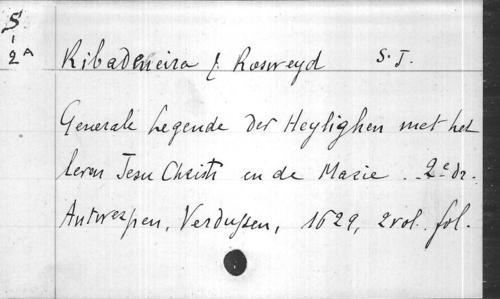 S
-
2 A
Ribadeneira & Rosweyd S.J.
Generale Legende der Heylighen met het
leven Jesu Christi ende Marie. 2e dr.
Antwerpen, Verdussen, 1629, 2 vol. fol.